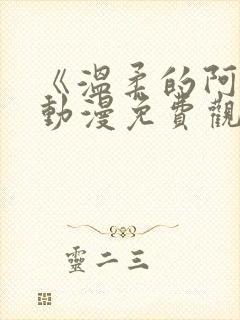 《溫柔的阿
動漫免費觀
靈二三